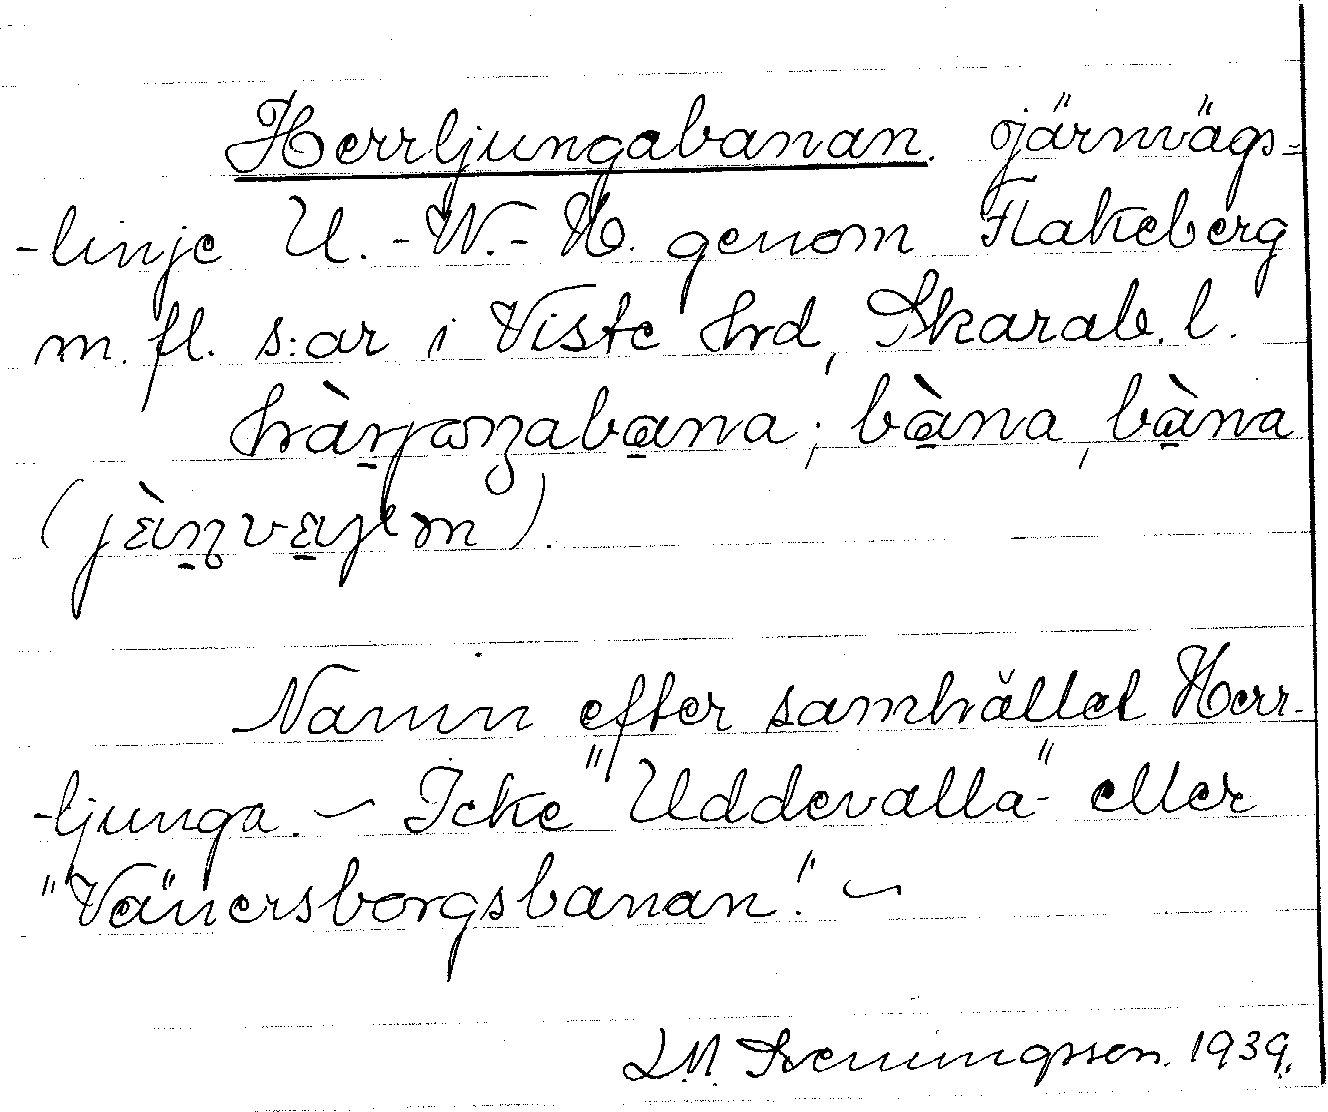 Herrljungabanan. järnvägs-
-linje U.-W.-H. genom Flakeberg
m. fl. s:ar i Viste hrd, Skarab. l.
bana; bàna, bàna

Namn efter samhället Herr-
-ljunga. — Icke "Uddevalla-" eller
"Vänersborgsbanan". —
L.M. 1939.